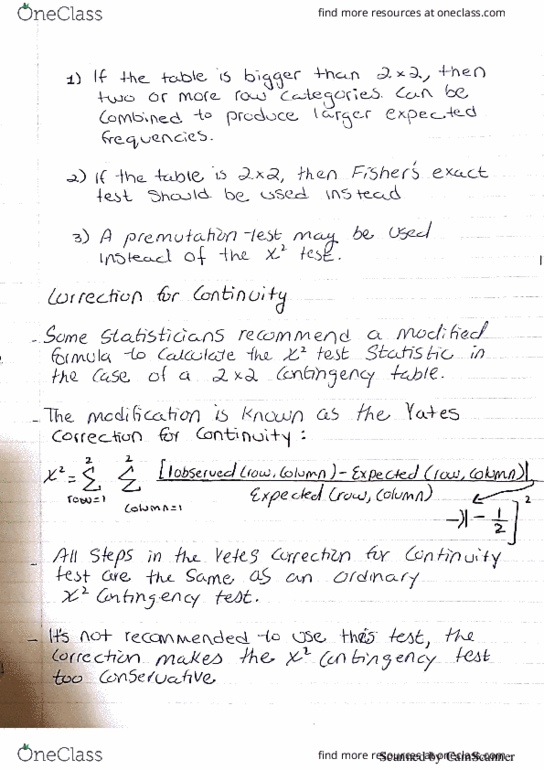 OneClass
find more resources at oneclass.com
1) If the table is bigger than 2×2, then
two or more row categories can be
combined to produce larger expected
frequencies.
2) if the table is 2×2, then Fisher's exact
test should be used instead
3) A premutation-test may be used
instead of the X² test.
Correction for Continuity
- Some statisticians recommend a modified
formula to calculate the X² test statistic in
the case of a 2×2 contingency table.
- The modification is known as the Yates
correction for continuity:
X² = 2 Σ row=1 2 Σ column=1 [|observed(row, column) - Expected(row, column)|
Expected(row, column)
→| - 1/2]²
- All steps in the Yetes correction for continuity
test are the same as an ordinary
X² contingency test.
- It's not recommended to use this test, the
correction makes the X² contingency test
too conservative
OneClass
find more resources at oneclass.com
Scanned by CamScanner